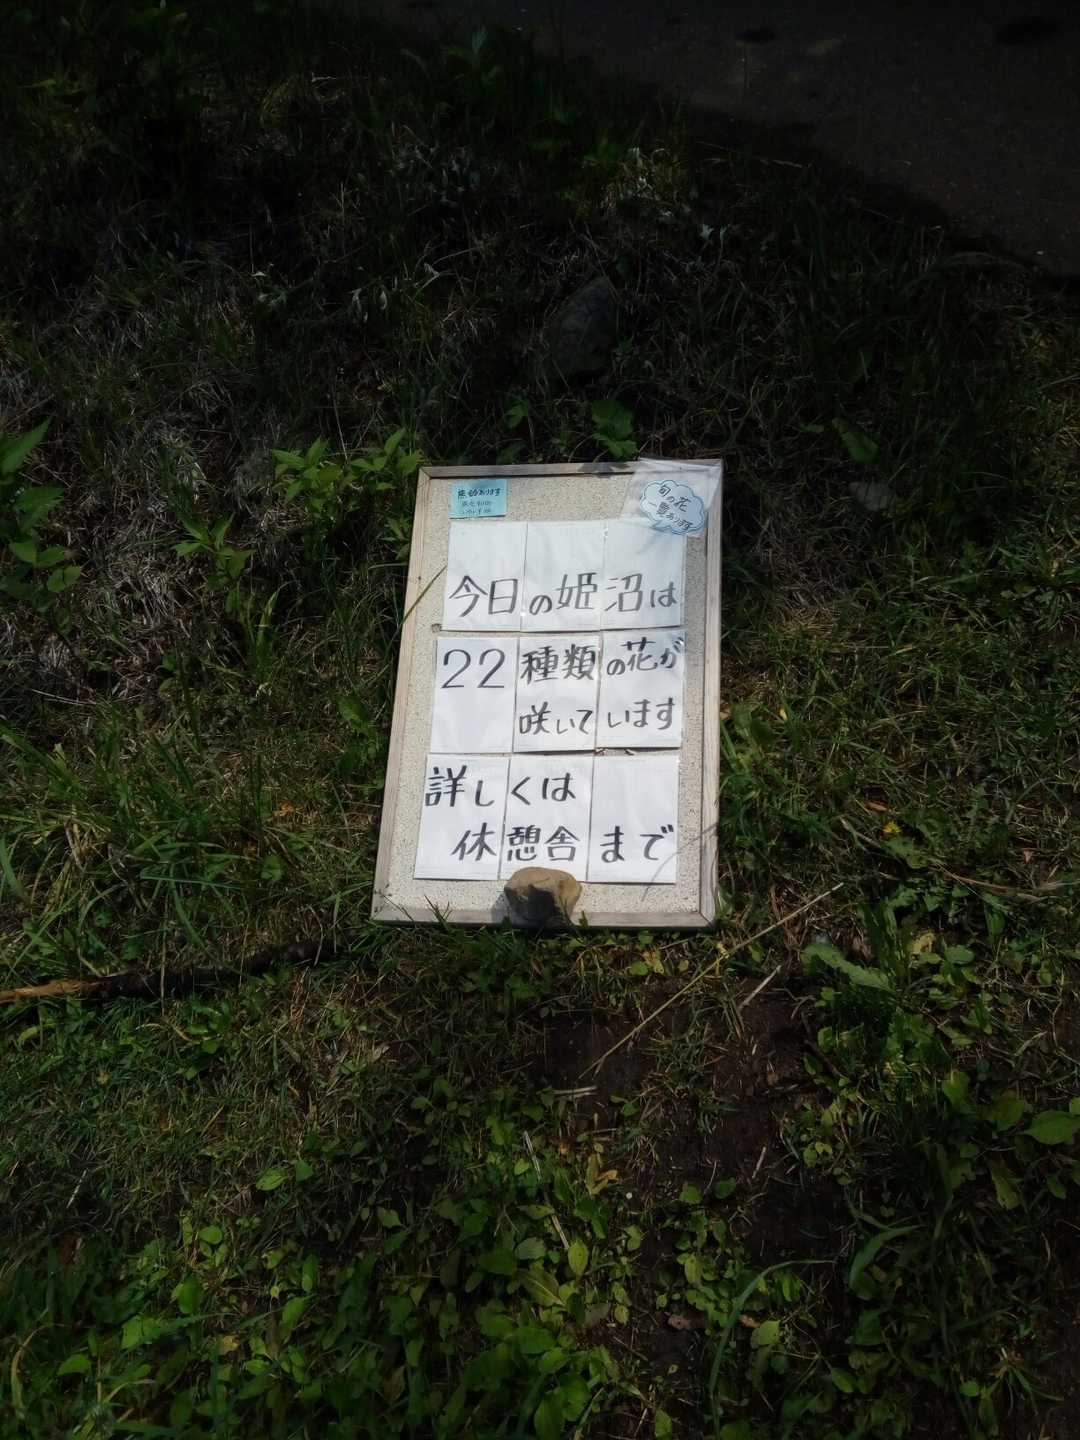 旬の花
一覧あります
今日の姫沼は
22種類の花が
咲いています
詳しくは
休憩舎まで